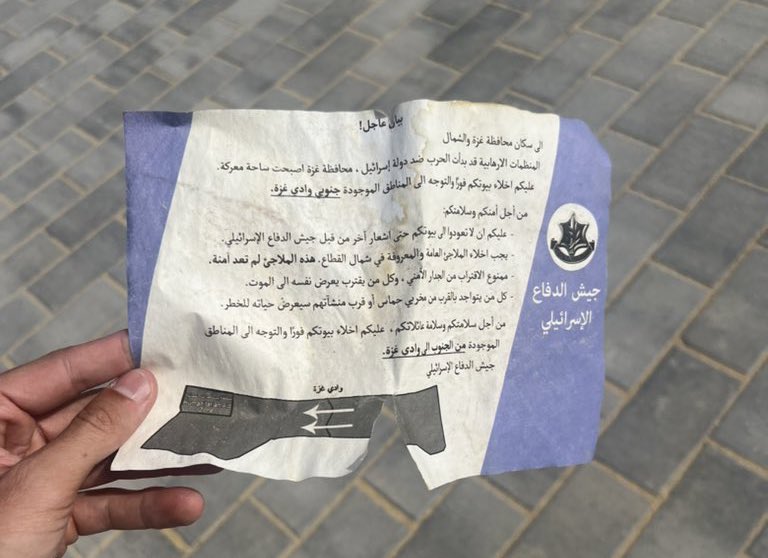 بيان عاجل!
الى سكان محافظة غزة والشمال
المنظمات الارهابية قد بدأت الحرب ضد دولة إسرائيل ، محافظة غزة اصبحت ساحة معركة.
عليكم اخلاء بيوتكم فورًا والتوجه الى المناطق الموجودة جنوبي وادي غزة.
من أجل أمنكم وسلامتكم:
- عليكم ان لا تعودوا الى بيوتكم حتى اشعار آخر من قبل جيش الدفاع الإسرائيلي.
- يجب اخلاء الملاجئ العامة والمعروفة في شمال القطاع. هذه الملاجئ لم تعد أمنة.
- ممنوع الاقتراب من الجدار الأمني ، وكل من يقترب يعرض نفسه الى الموت.
- كل من يتواجد بالقرب من مخربي حماس أو قرب منشآتهم سيعرض حياته للخطر.
من أجل سلامتكم وسلامة عائلاتكم ، عليكم اخلاء بيوتكم فورًا والتوجه الى المناطق
الموجودة من الجنوب الى وادي غزة.
جيش الدفاع الإسرائيلي
وادي غزة
جيش الدفاع
الإسرائيلي